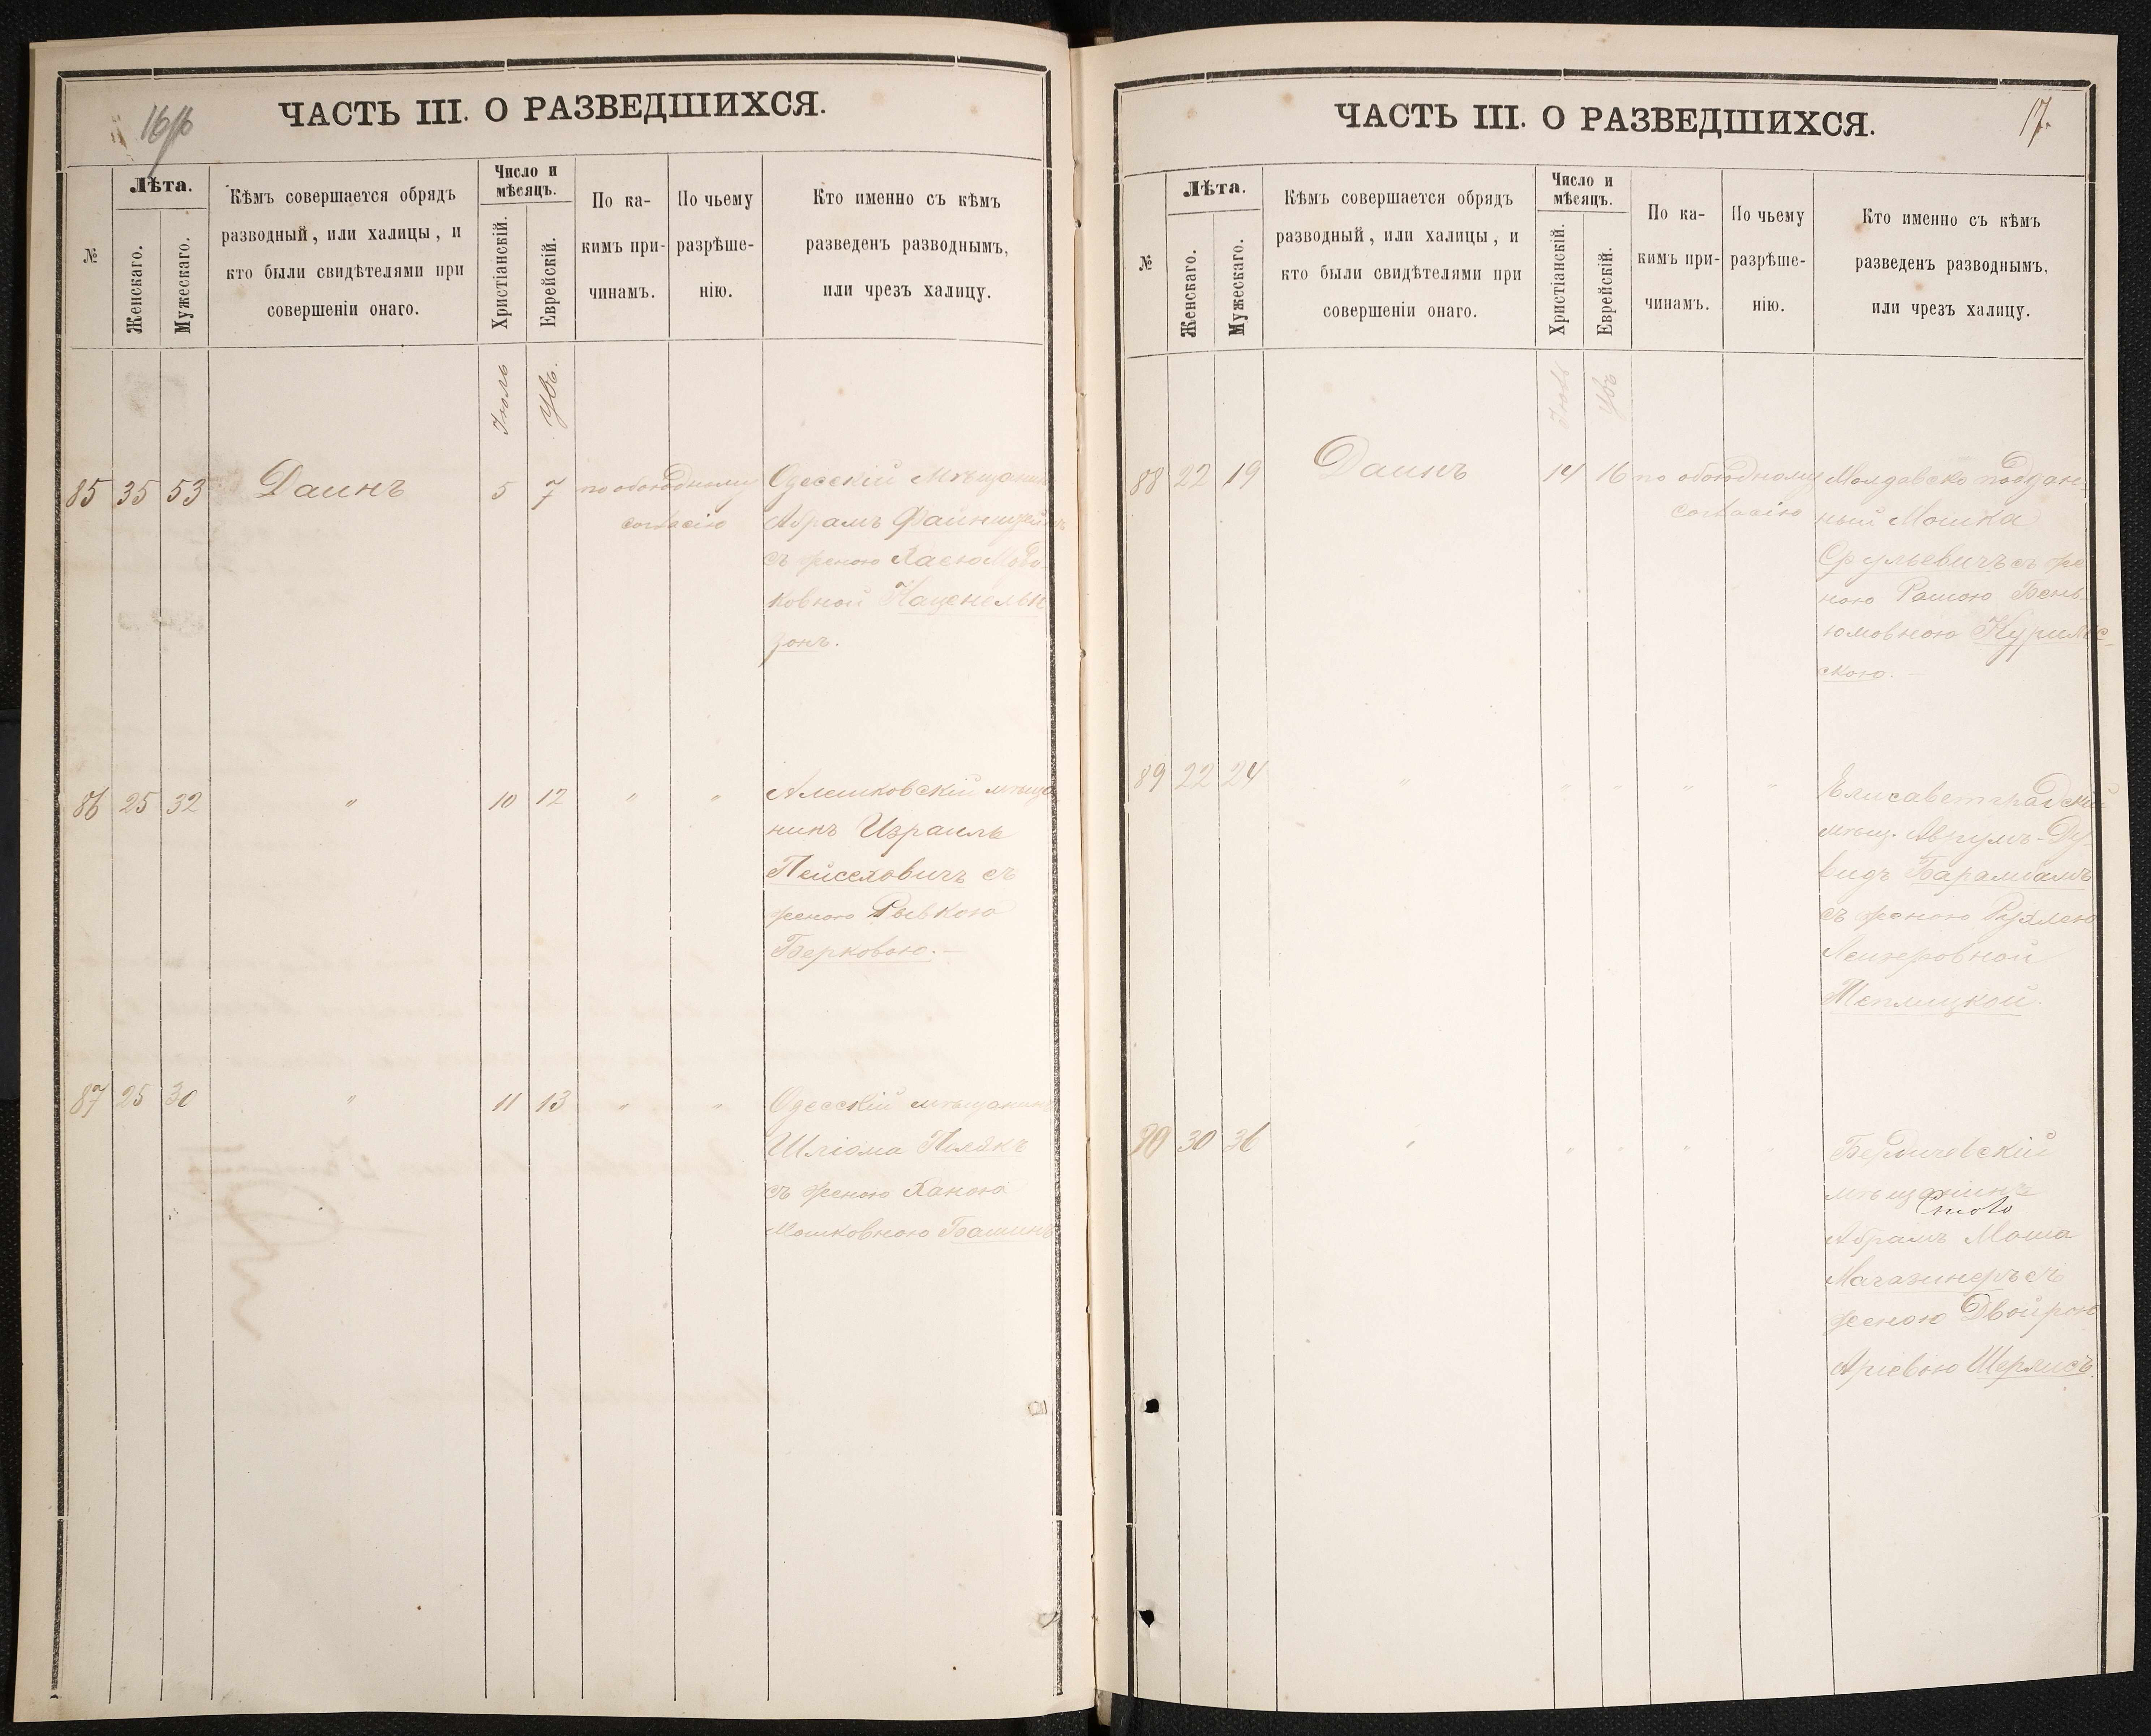 16
ЧАСТЬ III. О РАЗВЕДШИХСЯ.
№
Лѣта.
Женскаго.
Мужескаго.
Кѣмъ совершается обрядъ
разводный, или халицы, и
кто были свидѣтелями при
совершеніи онаго.
Число и
мѣсяцъ.
Христіанскій.
Еврейскій.
По ка-
кимъ при-
чинамъ.
По чьему
разрѣше-
нію.
Кто именно съ кѣмъ
разведенъ разводнымъ,
или чрезъ халицу.
Іюль
85 35 53 Даинъ 5 7 по обоюдному Одесскій Мѣщанинъ
согласію Абрамъ
съ женою Хасею
ковной Каценельн
зонъ.
86 25 32 " 10 12 " " Алешковскій мѣща
нинъ Израиль
Пейсеховичъ съ
женою Рывкою
Берковою.-
87 25 30 " 11 13 " " Одесскій мѣщанинъ
Шліома Полякъ
съ женою Ханою
Мошковною Башинъ
ЧАСТЬ III. О РАЗВЕДШИХСЯ.
17.
№
Лѣта.
Женскаго.
Мужескаго.
Кѣмъ совершается обрядъ
разводный, или халицы, и
кто были свидѣтелями при
совершеніи онаго.
Число и
мѣсяцъ.
Христіанскій.
Еврейскій.
По ка-
кимъ при-
чинамъ.
По чьему
разрѣше-
нію.
Кто именно съ кѣмъ
разведенъ разводнымъ,
или чрезъ халицу.
Іюль
88 22 19 Даинъ 14 16 по обоюдному Молдавско поддан-
согласію ный Мошка
Срульевичъ съ же
ною Рошою Бень-
юмовною
скою.-
89 22 24 " " " " " Елисаветградскій
мѣщ. Аврумъ-Ду-
видъ
съ женою Рухлею
Лейзеровной
Теплицкой.
90 30 36 " " " " " Бердичевскій
мѣщанинъ
Абрамъ Моша
Магазинеръ съ
женою Двойрою
Аріевою Шерлисъ.